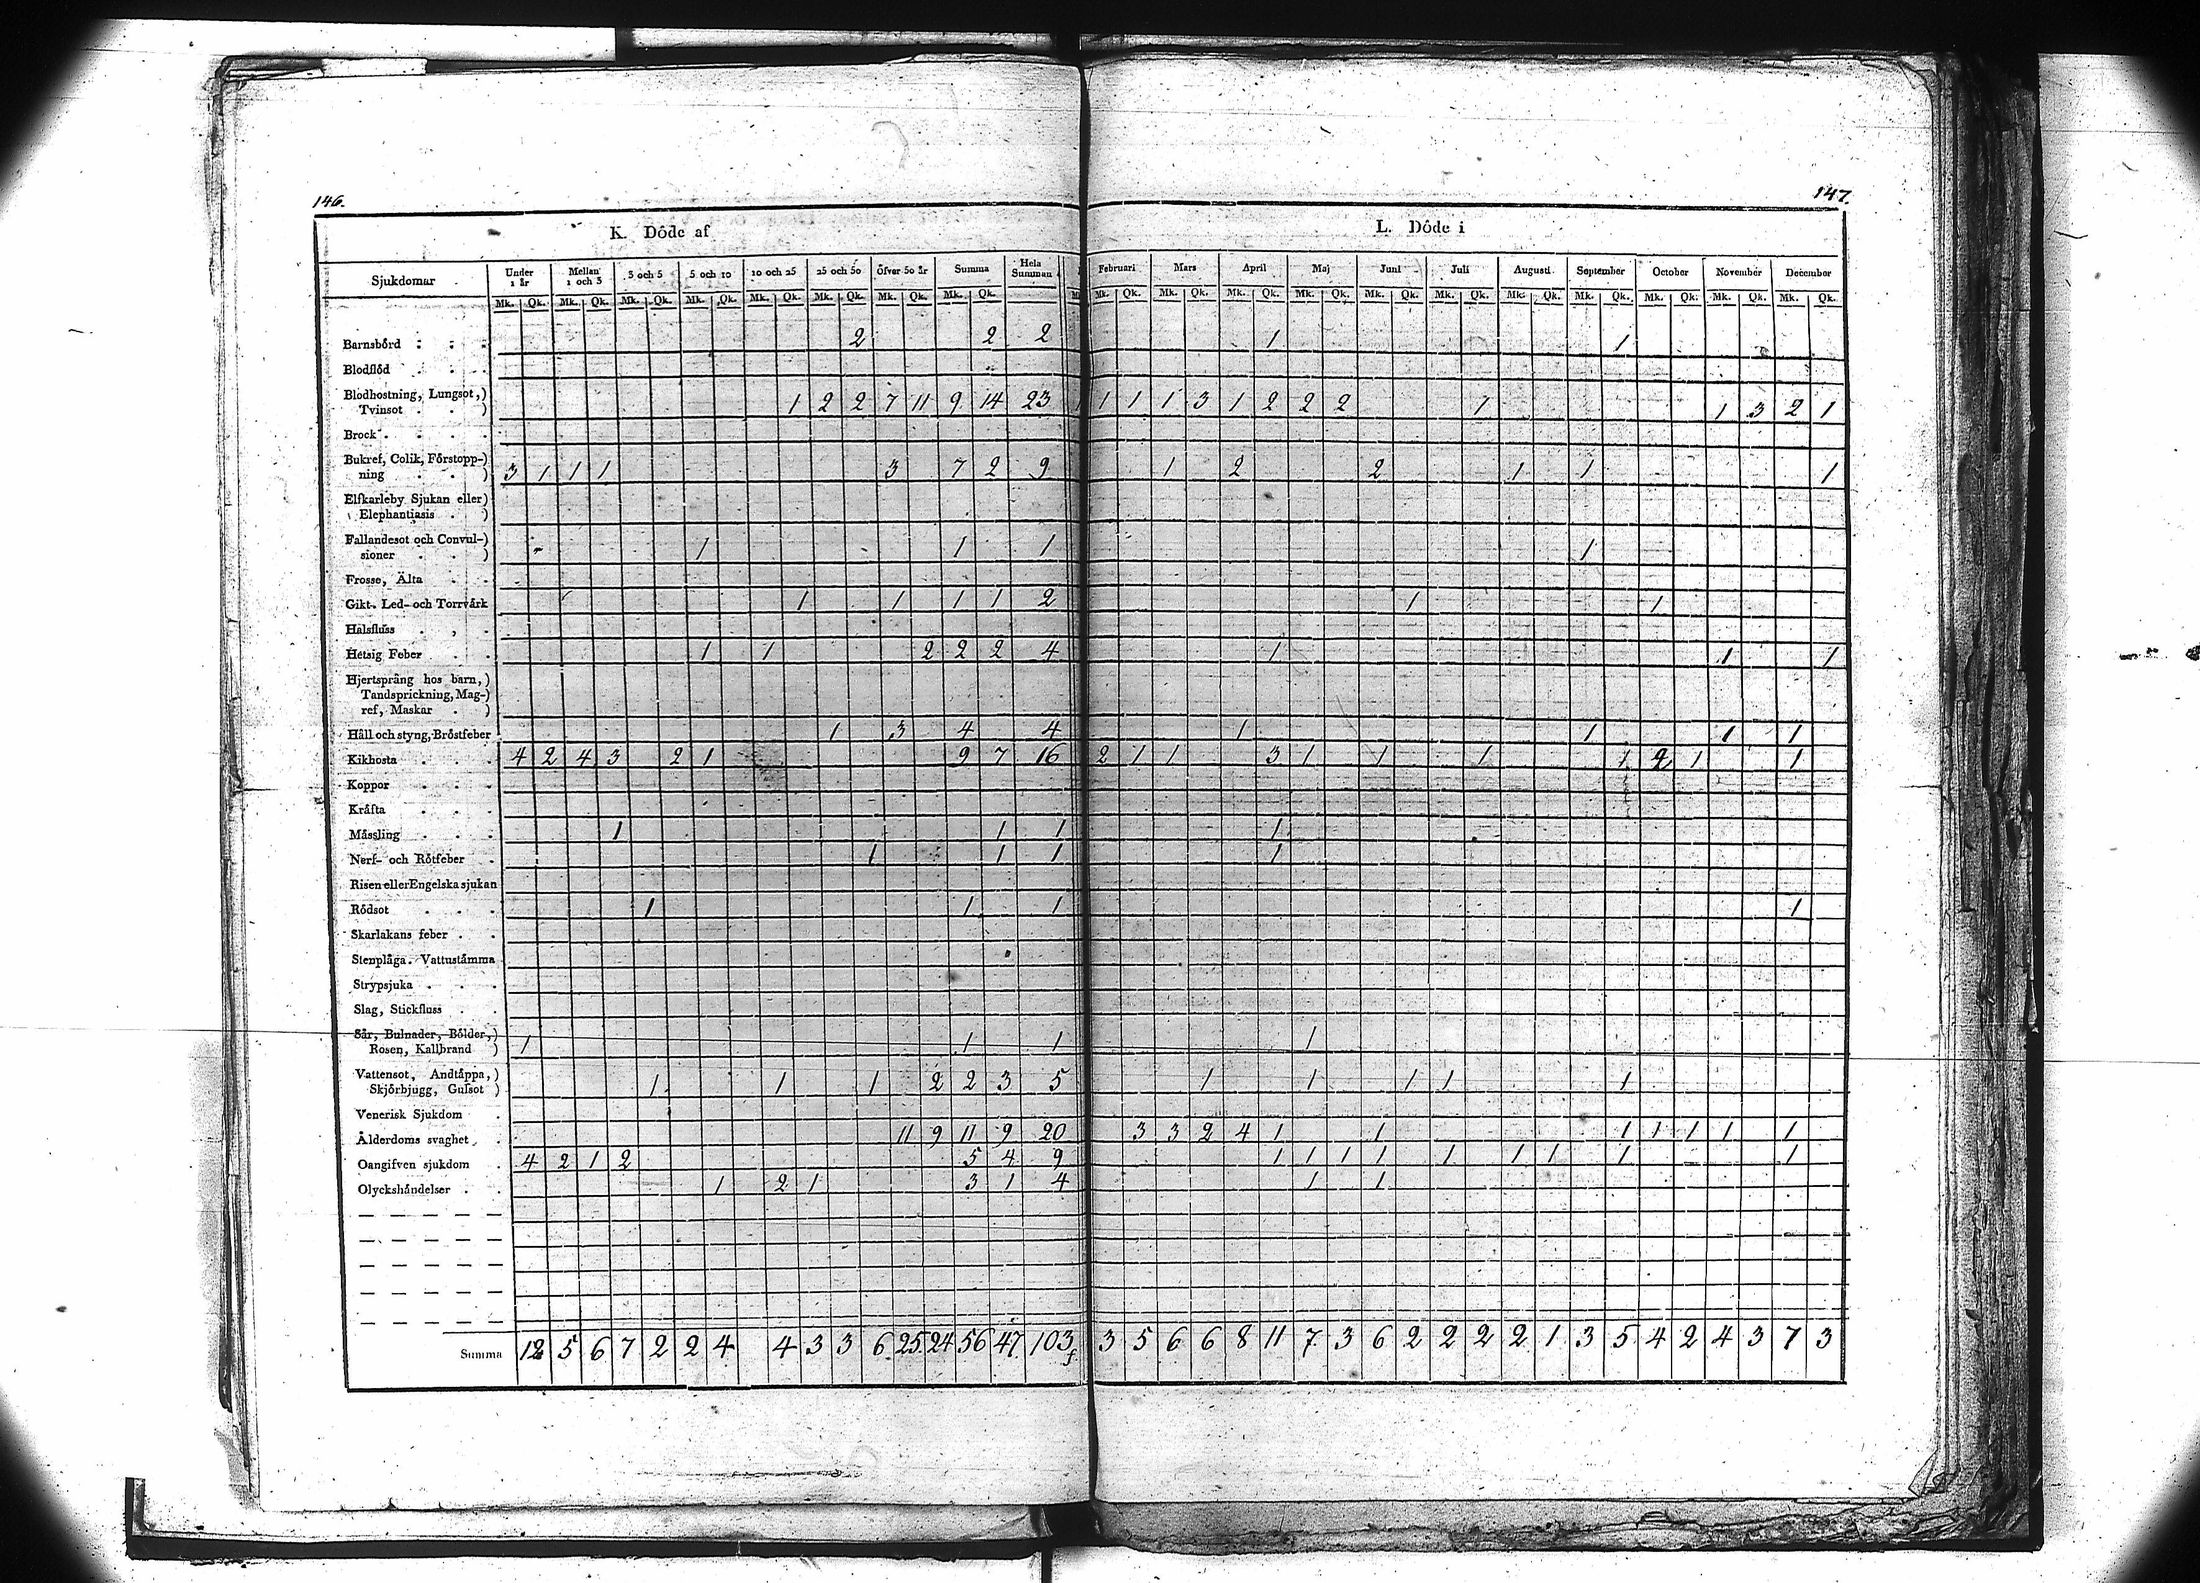 146.
147.
K. Döde af
L. Döde i
Sjukdomar Under 1 år Mellan 1 och 3 3 och 5 5 och 10 10 och 25 25 och 50 Öfver 50 år Summa Hela Summan Februari Mars April Maj Juni Juli Augusti September October November December
Mk. Qk. Mk. Qk. Mk. Qk. Mk. Qk. Mk. Qk. Mk. Qk. Mk. Qk. Mk. Qk. Mk. Qk. Mk. Qk. Mk. Qk. Mk. Qk. Mk. Qk. Mk. Qk. Mk. Qk. Mk. Qk. Mk. Qk. Mk. Qk. Mk. Qk.
Barnsbörd 2 2 2 1 1
Blodflöd
Blodhostning, Lungsot,)
Tvinsot ) 1 2 2 7 11 9 14 23 1 1 1 1 3 1 2 2 2 1 1 3 2 1
Brock
Bukref, Colik, Förstopp-)
ning ) 3 1 1 1 3 7 2 9 1 2 2 1 1 1
Elfkarleby Sjukan eller)
Elephantiasis )
Fallandesot och Convul-)
sioner ) 1 1 1 1
Frosse, Älta
Gikt- Led- och Torrvärk 1 1 1 1 2 1 1
Halsfluss
Hetsig Feber 1 1 2 2 2 4 1 1 1
Hjertsprång hos barn,)
Tandsprickning, Mag-)
ref, Maskar )
Håll och styng, Bröstfeber 1 3 4 4 1 1 1 1
Kikhosta 4 2 4 3 2 1 9 7 16 2 1 1 3 1 1 1 1 2 1 1
Koppor
Kräfta
Mässling 1 1 1 1
Nerf- och Rötfeber 1 1 1 1
Risen eller Engelska sjukan
Rödsot 1 1 1 1
Skarlakans feber
Stenplåga. Vattustämma
Strypsjuka
Slag, Stickfluss
Sår, Bulnader, Bölder,)
Rosen, Kallbrand ) 1 1 1 1
Vattensot, Andtäppa,)
Skjörbjugg, Gulsot ) 1 1 1 2 2 3 5 1 1 1 1 1
Venerisk Sjukdom
Ålderdoms svaghet 11 9 11 9 20 3 3 2 4 1 1 1 1 1 1 1
Oangifven sjukdom 4 2 1 2 5 4 9 1 1 1 1 1 1 1 1 1
Olyckshändelser 1 2 1 3 1 4 1 1
Summa 12 5 6 7 2 2 4 4 3 3 6 25 24 56 47 103 3 5 6 6 8 11 7 3 6 2 2 2 2 1 3 5 4 2 4 3 7 3